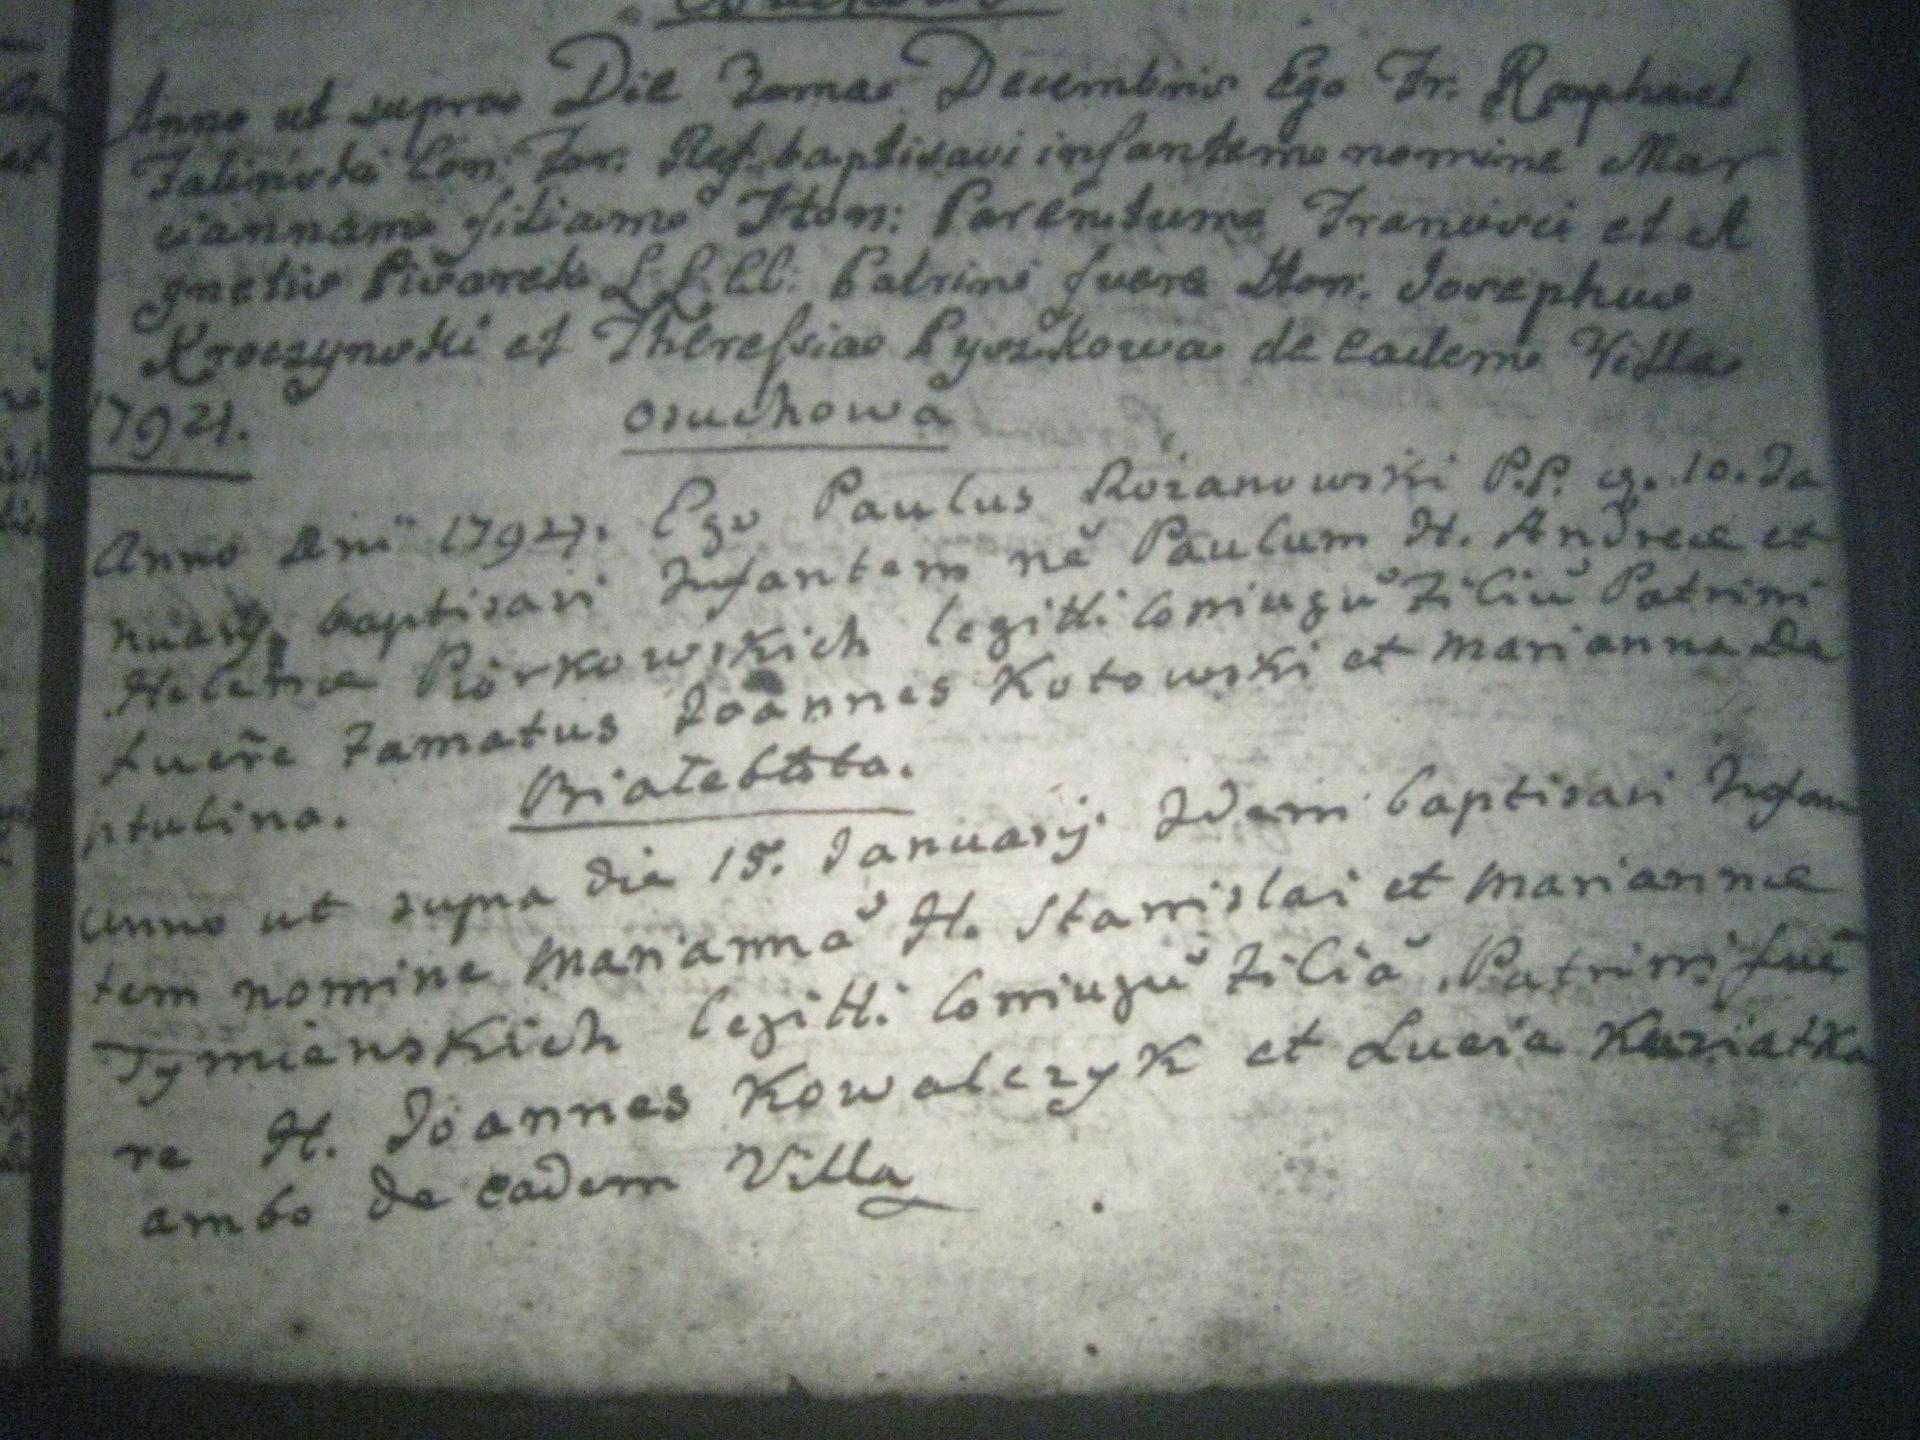 Anno ut supra Die Decembris Ego Fr. Raphael
Falinski Con: For. Ref: baptisavi infantem nomine Mar
ciannam filiam Hon: Parentum Francisci et A
gnetis L. L. CC: Patrini fuere Hon: Josephus
Kroczynski et Theressia Pyszkowa de eadem Villa
Osuchowa
Anno Dni Ego Paulus Rożanowski P.P. 10. Ja
nuarij baptisavi Infantem nē Paulum H. Andreæ et
Helenæ Piórkowskich legitti. Coniugū Filiū Patrini
fuere Famatus Joannes Kotowski et Marianna Da
ptulina.
Białebłota.
Anno ut supra die 15. Januarij Idem baptisavi Infan
tem nomine Mariannā H. Stanislai et Mariannæ
Tymienskich legitti. Coniugū Filiā, Patrini fue
re H. Joannes Kowalczyk et Lucia
ambo de eadem Villa